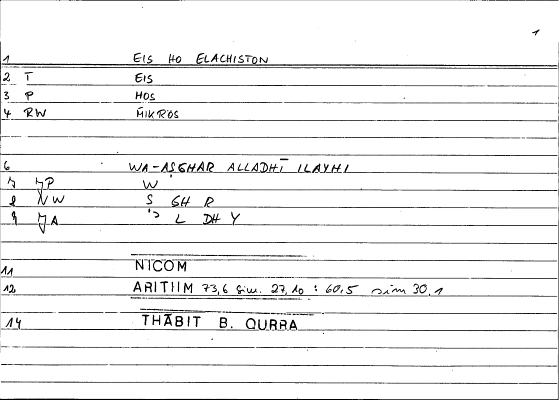 1
1 EIS HO ELACHISTON
2 T EIS
3 P HOS
4 RW MIKROS
6 WA-ASGHAR ALLADHĪ ILAYHI
P W
W S GH R
A L DH Y
11 NICOM
12 ARITHM 73,6 sim. 27,10 : 60,5 sim 30,1
14 THĀBIT B. QURRA